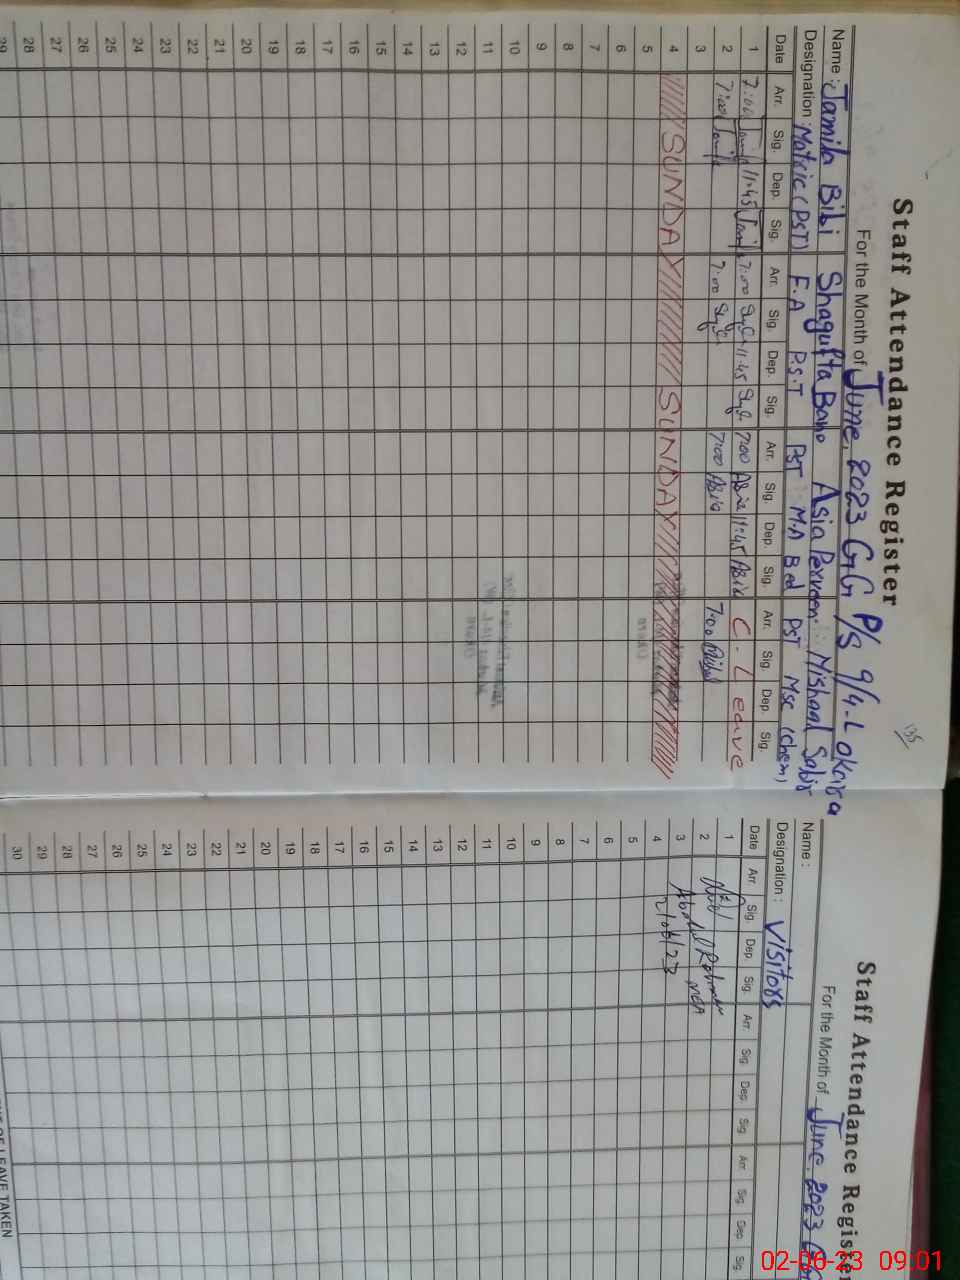 135
Staff Attendance Register
For the Month of June, 2023 GG P/S 9/4-L Okara
Name : Jamila Bibi Shagufta Bano Asia Parveen Mishaal Sabir
Designation : Matric (PST) F.A P.S.T PST M.A Bed PST Msc (chem)
Date Arr. Sig. Dep. Sig. Arr. Sig. Dep. Sig. Arr. Sig. Dep. Sig. Arr. Sig. Dep. Sig.
1 7:00 Jamila 11:45 Jamila 7:00 11:45 7:00 Asia 11:45 Asia C-Leave
2 7:00 Jamila 7:00 7:00 Asia 7:00
3
4 SUNDAY SUNDAY
5
6
7
8
9
10
11
12
13
14
15
16
17
18
19
20
21
22
23
24
25
26
27
28
29
Staff Attendance Register
For the Month of June, 2023
Name :
Designation : Visitors
Date Arr. Sig. Dep. Sig. Arr. Sig. Dep. Sig. Arr. Sig. Dep. Sig.
1
2
3
4 2/06/23
5
6
7
8
9
10
11
12
13
14
15
16
17
18
19
20
21
22
23
24
25
26
27
28
29
30
OF LEAVE TAKEN
02-06-23 09:01